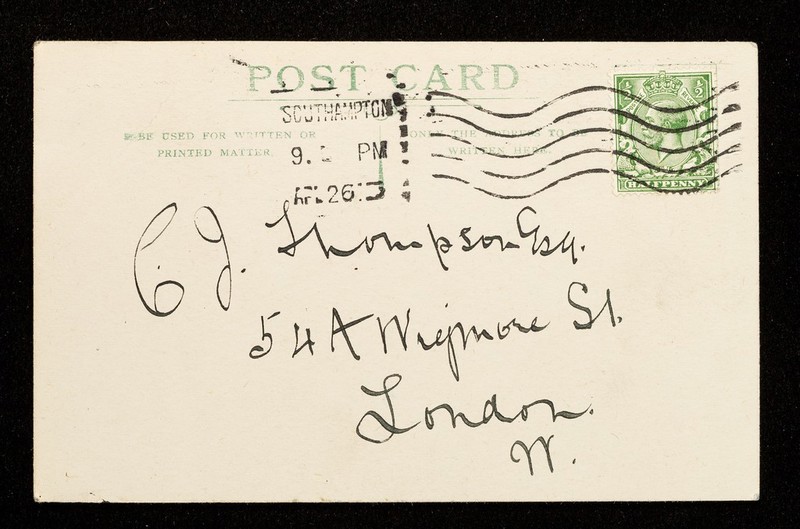 POST CARD
SOUTHAMPTON
BE USED FOR WRITTEN OR
PRINTED MATTER.
ONLY THE ADDRESS TO BE
WRITTEN HERE.
9. PM
26
½ ½
HALFPENNY
C. J. Thompson Esq.
54A Wigmore St.
London.
W.